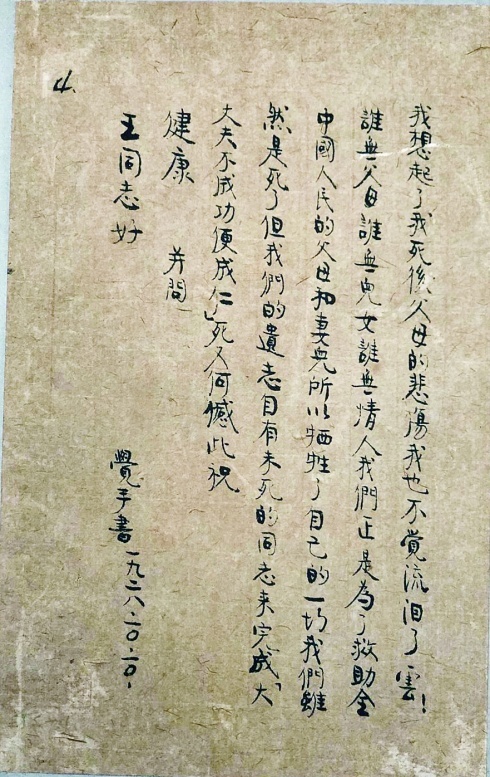 4.
我想起了我死後父母的悲傷我也不覚流泪了雲!
誰無父母誰無兒女誰無情人我們正是為了救助全
中國人民的父母和妻兒所以牺牲了自己的一切我們雖
然是死了但我們的遺志自有未死的同志来完成「大
丈夫不成功便成仁」死又何憾此祝
健康 并問
王同志好
覺手書一九二八.一〇.一〇.